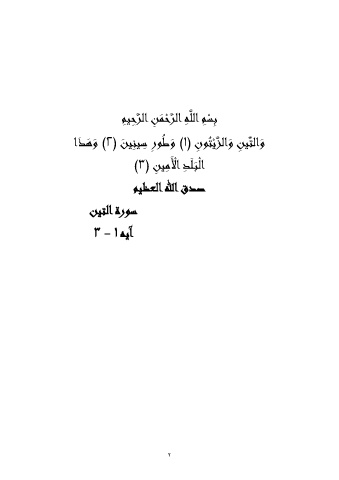 بِسْمِ اللَّهِ الرَّحْمَنِ الرَّحِيمِ
وَالتِّينِ وَالزَّيْتُونِ (١) وَطُورِ سِينِينَ (٢) وَهَذَا
الْبَلَدِ الْأَمِينِ (٣)
صدق الله العظيم
سورة التين
آيه ١ – ٣
٢